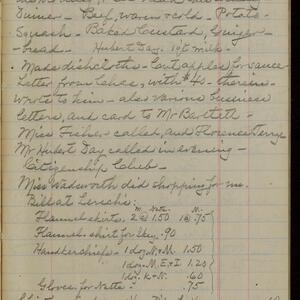 Dinner - Beef, warm & cold - Potato
Squash - Baked Custard, Ginger-
bread - Hubert Day. 1 qt milk -
Made dishcloths - Cut apples for sauce
Letter from Lukes, with $40 therein -
wrote to him - also various business
letters, and card to Mr Bartlett -
Miss Fisher called, and Florence Terry
Mr Hubert Day called in evening -
Citizenship Club -
Miss Wadsworth did shopping for me.
Bill at Linchs'
Flannel skirts 2 @ 1.50 1 @ .75
Flannel skirt for .90
Handkerchiefs - 1 doz. N. & M. 1.50
1 doz. M. E. & I. 1.20
1 doz. K & N. .60
Gloves for Nette .75